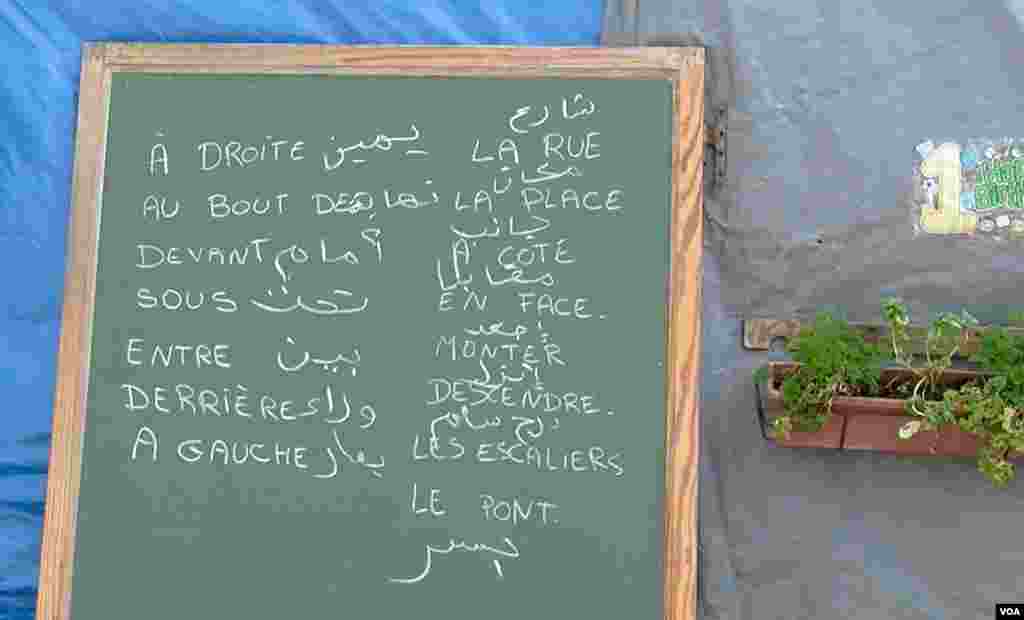 À DROITE يمين
AU BOUT DE نهاية
DEVANT أمام
SOUS تحت
ENTRE بين
DERRIÈRE وراء
A GAUCHE يسار
شارع
LA RUE
مكان
LA PLACE
جانب
A COTE
مقابل
EN FACE.
MONTER
أنزل
DESCENDRE.
درج سلم
LES ESCALIERS
LE PONT.
جسر
1
VOA